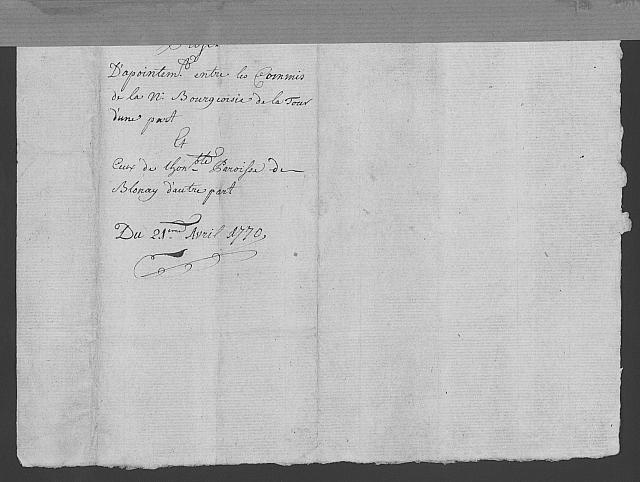 Projet
D'apointem.t entre les Commis
de la N.e Bourgeoisie de la Tour
d'une part
Et
Ceux de l'hon.ble Paroisse de
Blonay d'autre part
Du 21.eme Avril 1770,